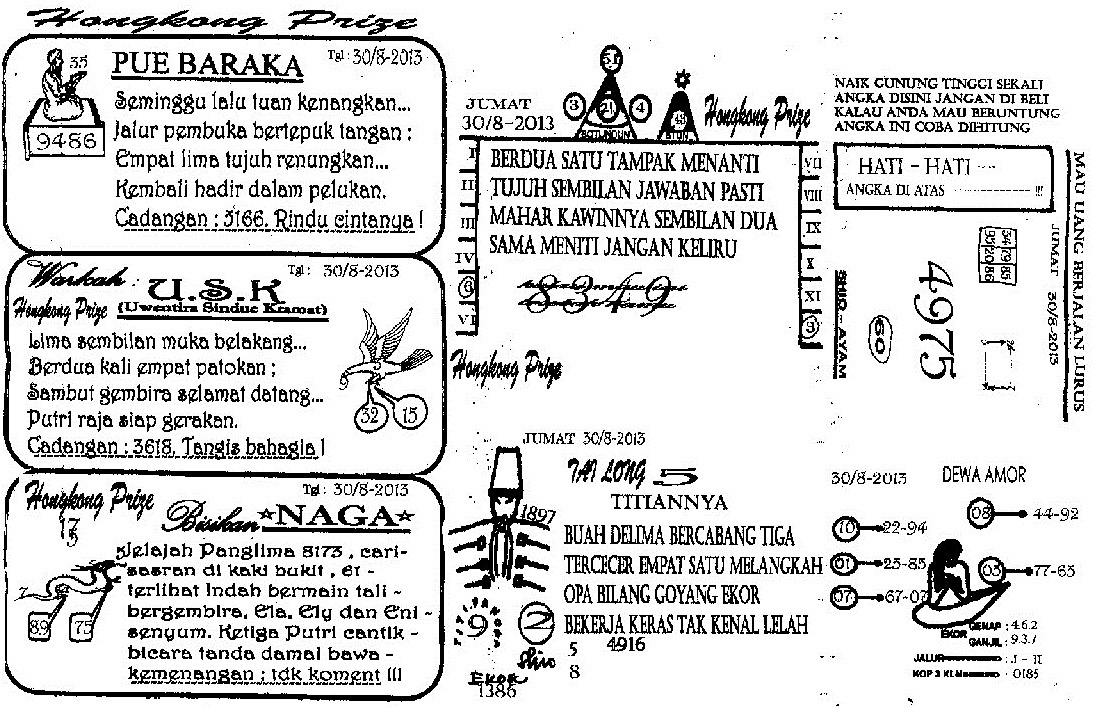 Hongkong Prize
PUE BARAKA
Tgl: 30/8-2013
35
9486
Seminggu lalu tuan kenangkan...
Jalur pembuka bertepuk tangan :
Empat lima tujuh renungkan...
Kembali hadir dalam pelukan.
Cadangan : 3166. Rindu cintanya !
Warkah :
U.S.K
Tgl: 30/8-2013
Hongkong Prize
(Uwentira Sinduc Kramat)
Lima sembilan muka belakang...
Berdua kali empat patokan ;
Sambut gembira selamat datang...
Putri raja siap gerakan.
Cadangan : 3618. Tangis bahagia !
32
15
Hongkong Prize
Tgl : 30/8-2013
17
5
Bisikan ☆NAGA☆
Jelajah Panglima 8173 , cari-
sasran di kaki bukit , et -
terlihat indah bermain tali -
bergembira. Ela, Ely dan Eni -
senyum. Ketiga Putri cantik -
bicara tanda damai bawa -
kemenangan ; tdk koment !!!
89
75
JUMAT
30/8-2013
3
21
4
Hongkong Prize
I
II
III
IV
6
VI
BERDUA SATU TAMPAK MENANTI
TUJUH SEMBILAN JAWABAN PASTI
MAHAR KAWINNYA SEMBILAN DUA
SAMA MENITI JANGAN KELIRU
8349
VII
VIII
IX
X
XI
9
Hongkong Prize
JUMAT 30/8-2013
TAI LONG 5
TITIANNYA
1897
BUAH DELIMA BERCABANG TIGA
TERCECER EMPAT SATU MELANGKAH
OPA BILANG GOYANG EKOR
BEKERJA KERAS TAK KENAL LELAH
9
2
Shio
5
8
4916
EKOR
1386
NAIK GUNUNG TINGGI SEKALI
ANGKA DISINI JANGAN DI BELI
KALAU ANDA MAU BERUNTUNG
ANGKA INI COBA DIHITUNG
HATI - HATI ....
ANGKA DI ATAS ---------------- !!!
MAU UANG BERJALAN LURUS
JUMAT 30/8-2013
4975
60
SHIO - AYAM
30/8-2013
DEWA AMOR
10 22-94
01 23-85
07 67-07
08 44-92
03 77-63
EKOR
GENAP : 4.6.2
GANJIL : 9.3.7
JALUR
KOP 3 KI
: 0185